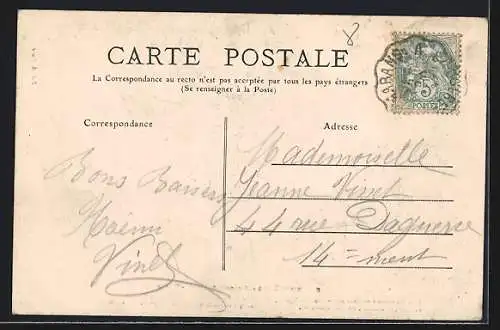 8
CARTE POSTALE
La Correspondance au recto n'est pas acceptée par tous les pays étrangers
(Se renseigner à la Poste)
Correspondance
Adresse
5
POSTES
Bons Baisers
Vinet
Mademoiselle
Jeanne Vinet
44 rue Daguerre
14=ment